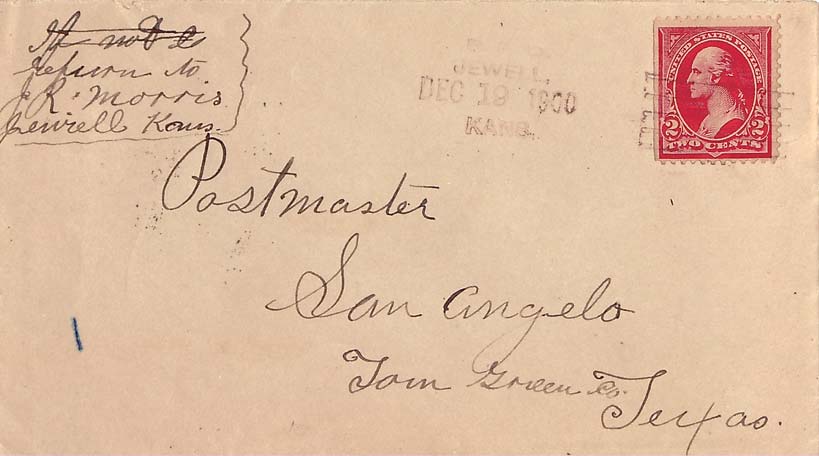 If not c
return to
J R. Morris
Jewell Kans.
JEWELL,
DEC 19 1900
KANS.
UNITED STATES POSTAGE
2 2
TWO CENTS
Postmaster
San Angelo
Tom Green Co.
Texas.